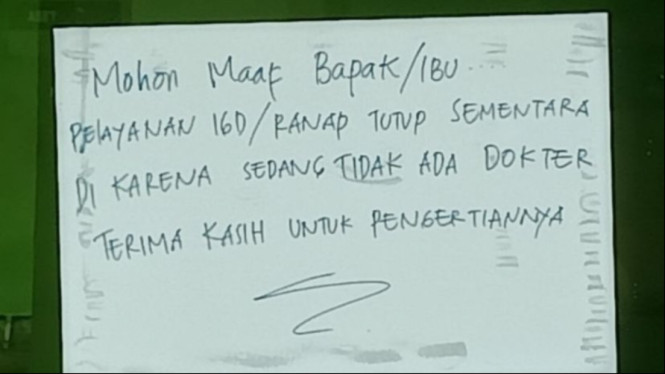 Mohon Maaf Bapak/IBU...
PELAYANAN IGD/RANAP TUTUP SEMENTARA
DI KARENA SEDANG TIDAK ADA DOKTER
TERIMA KASIH UNTUK PENGERTIANNYA